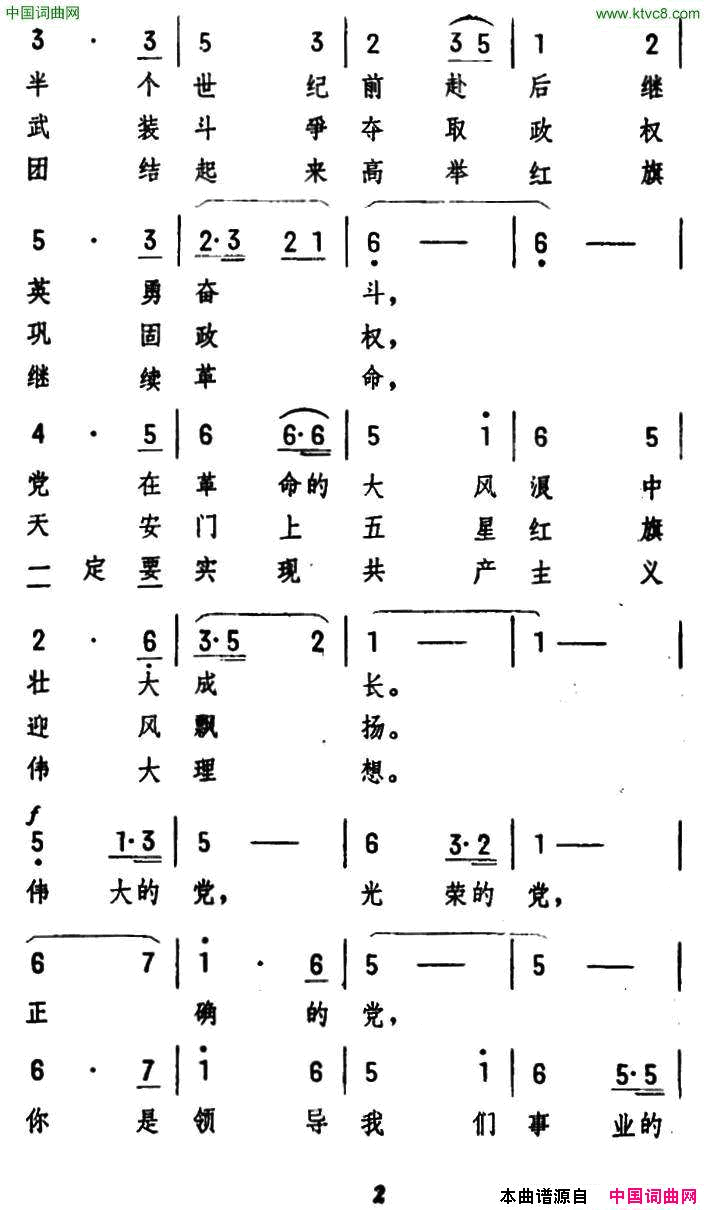 中国词曲网 www.ktvc8.com
3 · 3 | 5 3 | 2 3 5 | 1 2 |
半 个 世 纪 前 赴 后 继
武 装 斗 争 夺 取 政 权
团 结 起 来 高 举 红 旗
5 · 3 | 2·3 2 1 | 6 — | 6 — |
英 勇 奋 斗，
巩 固 政 权，
继 续 革 命，
4 · 5 | 6 6·6 | 5 i | 6 5 |
党 在 革 命的 大 风 浪 中
天 安 门 上 五 星 红 旗
一 定 要 实 现 共 产 主 义
2 · 6 | 3·5 2 | 1 — | 1 — |
壮 大 成 长。
迎 风 飘 扬。
伟 大 理 想。
f
5 1·3 | 5 — | 6 3·2 | 1 — |
伟 大的 党， 光 荣的 党，
6 7 | i · 6 | 5 — | 5 — |
正 确 的 党，
6 · 7 | i 6 | 5 i | 6 5·5 |
你 是 领 导 我 们 事 业的
2
本曲谱源自 中国词曲网